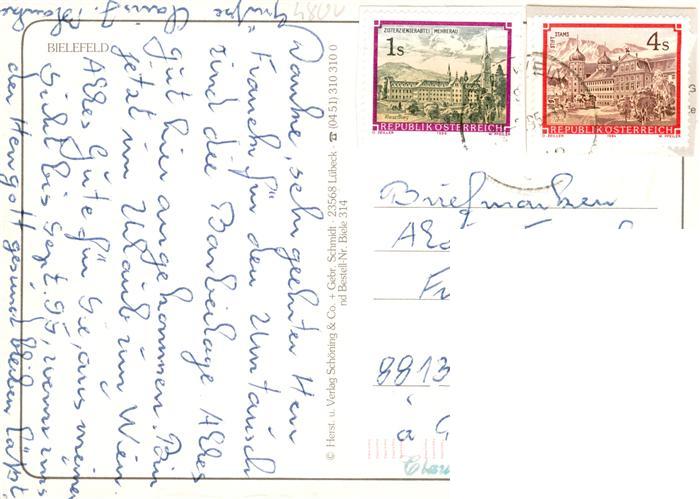 BIELEFELD
Danke, sehr geehrter Herr
Franch für den Umtausch
und die Barbeilage. Alles
gut hier angekommen. Bin
jetzt im Urlaub in Wien.
Alles Gute für Sie, aus meiner
Sicht bis Sept. 95, wenn uns
der Herrgott gesund bleiben läßt
Grüße
© Herst. u. Verlag Schöning & Co. + Gebr. Schmidt · 23568 Lübeck ☎ (0451) 310 310 0
nd Bestell-Nr. Biele 314
ZISTERZIENSERABTEI MEHRERAU
1s
REPUBLIK ÖSTERREICH
STIFT STAMS
4s
REPUBLIK ÖSTERREICH
Briefmarken
8813